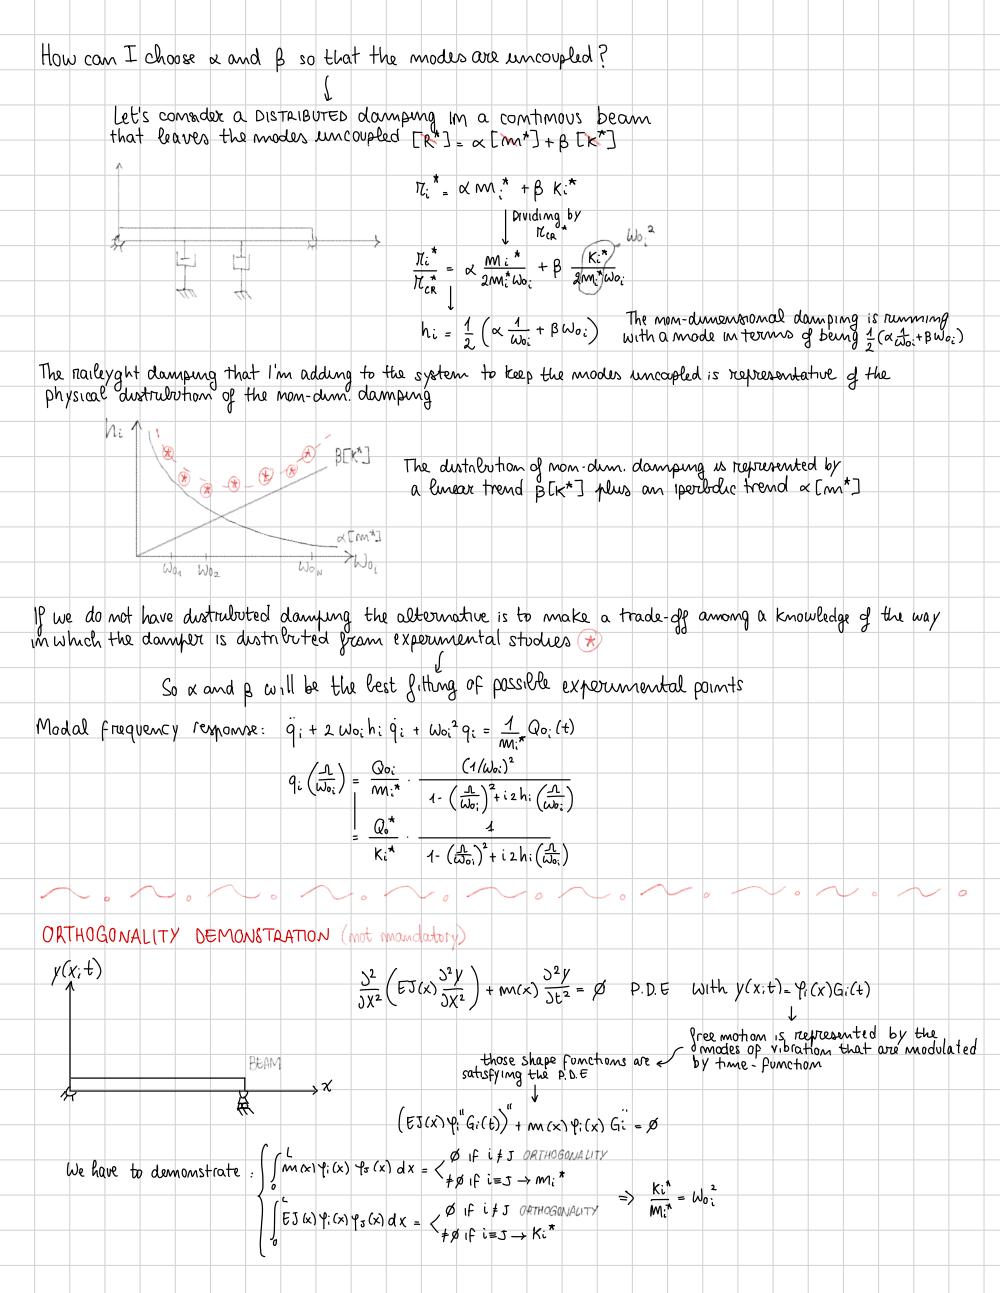 How can I choose α and β so that the modes are uncoupled?
↓
Let's consider a DISTRIBUTED damping in a continous beam
that leaves the modes uncoupled [R*] = α[m*] + β[K*]
r_i* = α m_i* + β K_i*
↓ Dividing by r_CR*
r_i*/r_CR* = α m_i*/(2m_i*ω_0i) + β K_i*/(2m_i*ω_0i) → ω_0i²
h_i = 1/2 (α 1/ω_0i + β ω_0i)
The non-dimensional damping is running
with a mode in terms of being 1/2(α 1/ω_0i + β ω_0i)
The raileyght damping that I'm adding to the system to keep the modes uncoupled is representative of the
physical distribution of the non-dim. damping
h_i
β[K*]
α[m*]
ω_01 ω_02 ω_0N ω_0i
The distribution of non-dim. damping is represented by
a linear trend β[K*] plus an iperbolic trend α[m*]
If we do not have distributed damping the alternative is to make a trade-off among a knowledge of the way
in which the damper is distributed from experimental studies *
↓
So α and β will be the best fitting of possible experimental points
Modal frequency response: q̈_i + 2ω_0i h_i q̇_i + ω_0i² q_i = 1/m_i* Q_0i(t)
q_i(Ω/ω_0i) = Q_0i/m_i* · (1/ω_0i)²/(1-(Ω/ω_0i)² + i2h_i(Ω/ω_0i))
= Q_0*/K_i* · 1/(1-(Ω/ω_0i)² + i2h_i(Ω/ω_0i))
ORTHOGONALITY DEMONSTRATION (not mandatory)
y(x;t)
BEAM
x
∂²/∂x² (EJ(x) ∂²y/∂x²) + m(x) ∂²y/∂t² = ∅ P.D.E with y(x;t) = φ_i(x)G_i(t)
↓
free motion is represented by the
modes of vibration that are modulated
by time-function
those shape functions are ←
satisfying the P.D.E
↓
(EJ(x)φ_i''G_i(t))'' + m(x)φ_i(x)G̈_i = ∅
We have to demonstrate:
∫_0^L m(x)φ_i(x)φ_J(x)dx = < ∅ if i≠J ORTHOGONALITY
≠∅ if i≡J → m_i*
∫_0^L EJ(x)φ_i(x)φ_J(x)dx = < ∅ if i≠J ORTHOGONALITY
≠∅ if i≡J → K_i*
⇒ K_i*/m_i* = ω_0i²